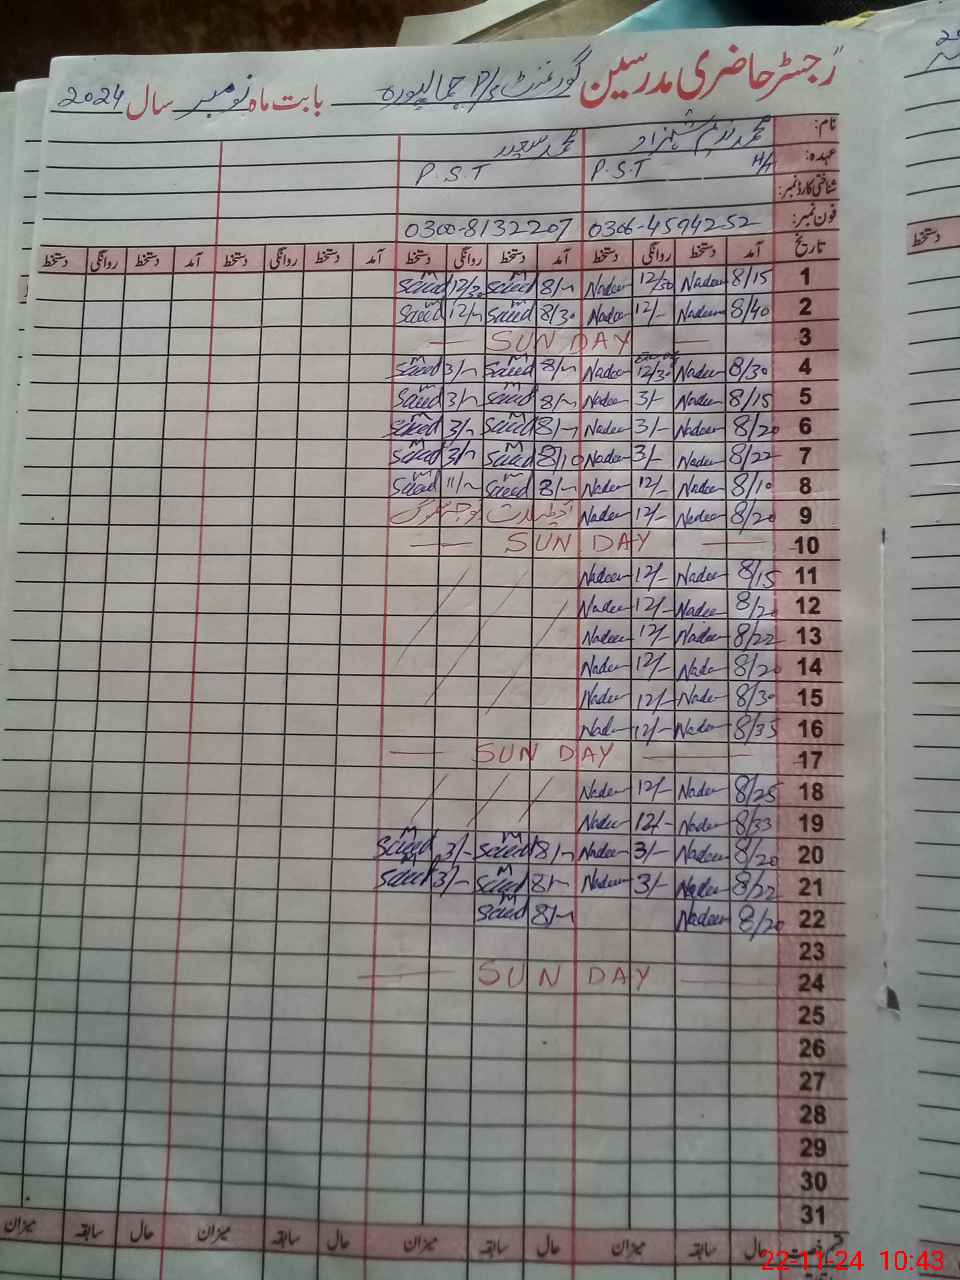 رجسٹر حاضری مدرسین گورنمنٹ P/S جمالپورہ بابت ماہ نومبر سال 2024
نام: محمد ندیم شہزاد محمد سعید
عہدہ: H/T P.S.T P.S.T
شناختی کارڈ نمبر:
فون نمبر: 0306-4594252 0300-8132207
تاریخ آمد دستخط روانگی دستخط آمد دستخط روانگی دستخط آمد دستخط روانگی دستخط آمد دستخط روانگی دستخط
1 8/15 Nadeem 12/30 Nadeem 8/- Saeed 12/30 Saeed
2 8/40 Nadeem 12/- Nadeem 8/30 Saeed 12/- Saeed
3 SUNDAY
4 8/30 Nadeem 12/30 Nadeem 8/- Saeed 3/- Saeed
5 8/15 Nadeem 3/- Nadeem 8/- Saeed 3/- Saeed
6 8/20 Nadeem 3/- Nadeem 8/- Saeed 3/- Saeed
7 8/22 Nadeem 3/- Nadeem 8/10 Saeed 3/- Saeed
8 8/10 Nadeem 12/- Nadeem 8/- Saeed 11/- Saeed
9 8/20 Nadeem 12/- Nadeem
10 SUNDAY
11 8/15 Nadeem 12/- Nadeem
12 8/20 Nadeem 12/- Nadeem
13 8/22 Nadeem 12/- Nadeem
14 8/20 Nadeem 12/- Nadeem
15 8/30 Nadeem 12/- Nadeem
16 8/35 Nadeem 12/- Nadeem
17 SUNDAY
18 8/25 Nadeem 12/- Nadeem
19 8/33 Nadeem 12/- Nadeem
20 8/20 Nadeem 3/- Nadeem 8/- Saeed 3/- Saeed
21 8/22 Nadeem 3/- Nadeem 8/- Saeed 3/- Saeed
22 8/20 Nadeem 8/- Saeed
23
24 SUNDAY
25
26
27
28
29
30
31
حال سابقہ میزان حال سابقہ میزان حال سابقہ میزان حال سابقہ میزان
22-11-24 10:43